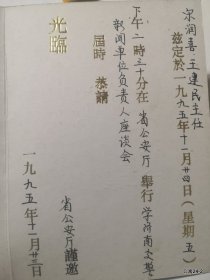 宋润喜 王建民主任
兹定於一九九五年十二月廿四日(星期五)
下午二时三十分在省公安厅舉行学济南交警
新闻单位负责人座谈会
届時恭請
光臨
省公安厅謹邀
一九九五年十二月廿三日